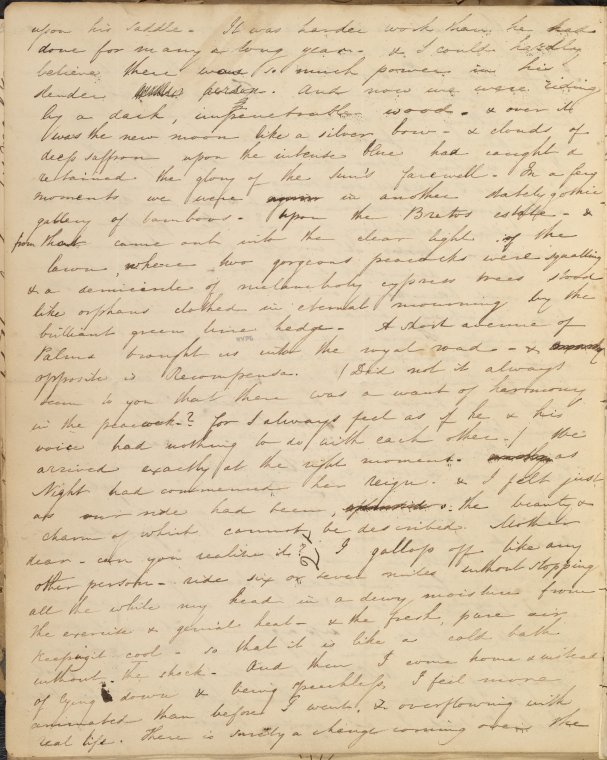 upon his saddle - It was harder work than he had
done for many a long year - & I could hardly
believe there was so much power in his
slender person. And now we were riding
by a dark, impenetrable wood - & over it
was the new moon like a silver bow - & clouds, of
deep saffron upon the intense blue had caught &
retained the glory of the sun's farewell - In a few
moments we were in another stately gothic
gallery of bamboos - upon the Bretos estate - &
from that came out into the clear light of the
lawn, where two gorgeous peacocks were squalling
& a demicircle of melancholy cypress trees stood
like orphans clothed in eternal mourning by the
brilliant green lime hedge - A short avenue of
Palms brought us into the royal road - &
opposite is Recompensa. (Did not it always
seem to you that there was a want of harmony
in the peacock-? for I always feel as if he & his
voice had nothing to do with each other-) We
arrived exactly at the right moment - as
Night had commenced her reign. & I felt just
as our ride had been, the beauty &
charm of which cannot be described Mother
dear - can you realize it 2nd I gallop off like any
other person - ride six or seven miles without stopping
all the while my head in a dewy moisture from
the exercise & genial heat - & the fresh, pure air
keeping it cool - so that it is like a cold bath
without the shock - And then I come home & instead
of lying down & being speechless, I feel more
animated than before I went, & overflowing with
real life. There is surely a change coming over the